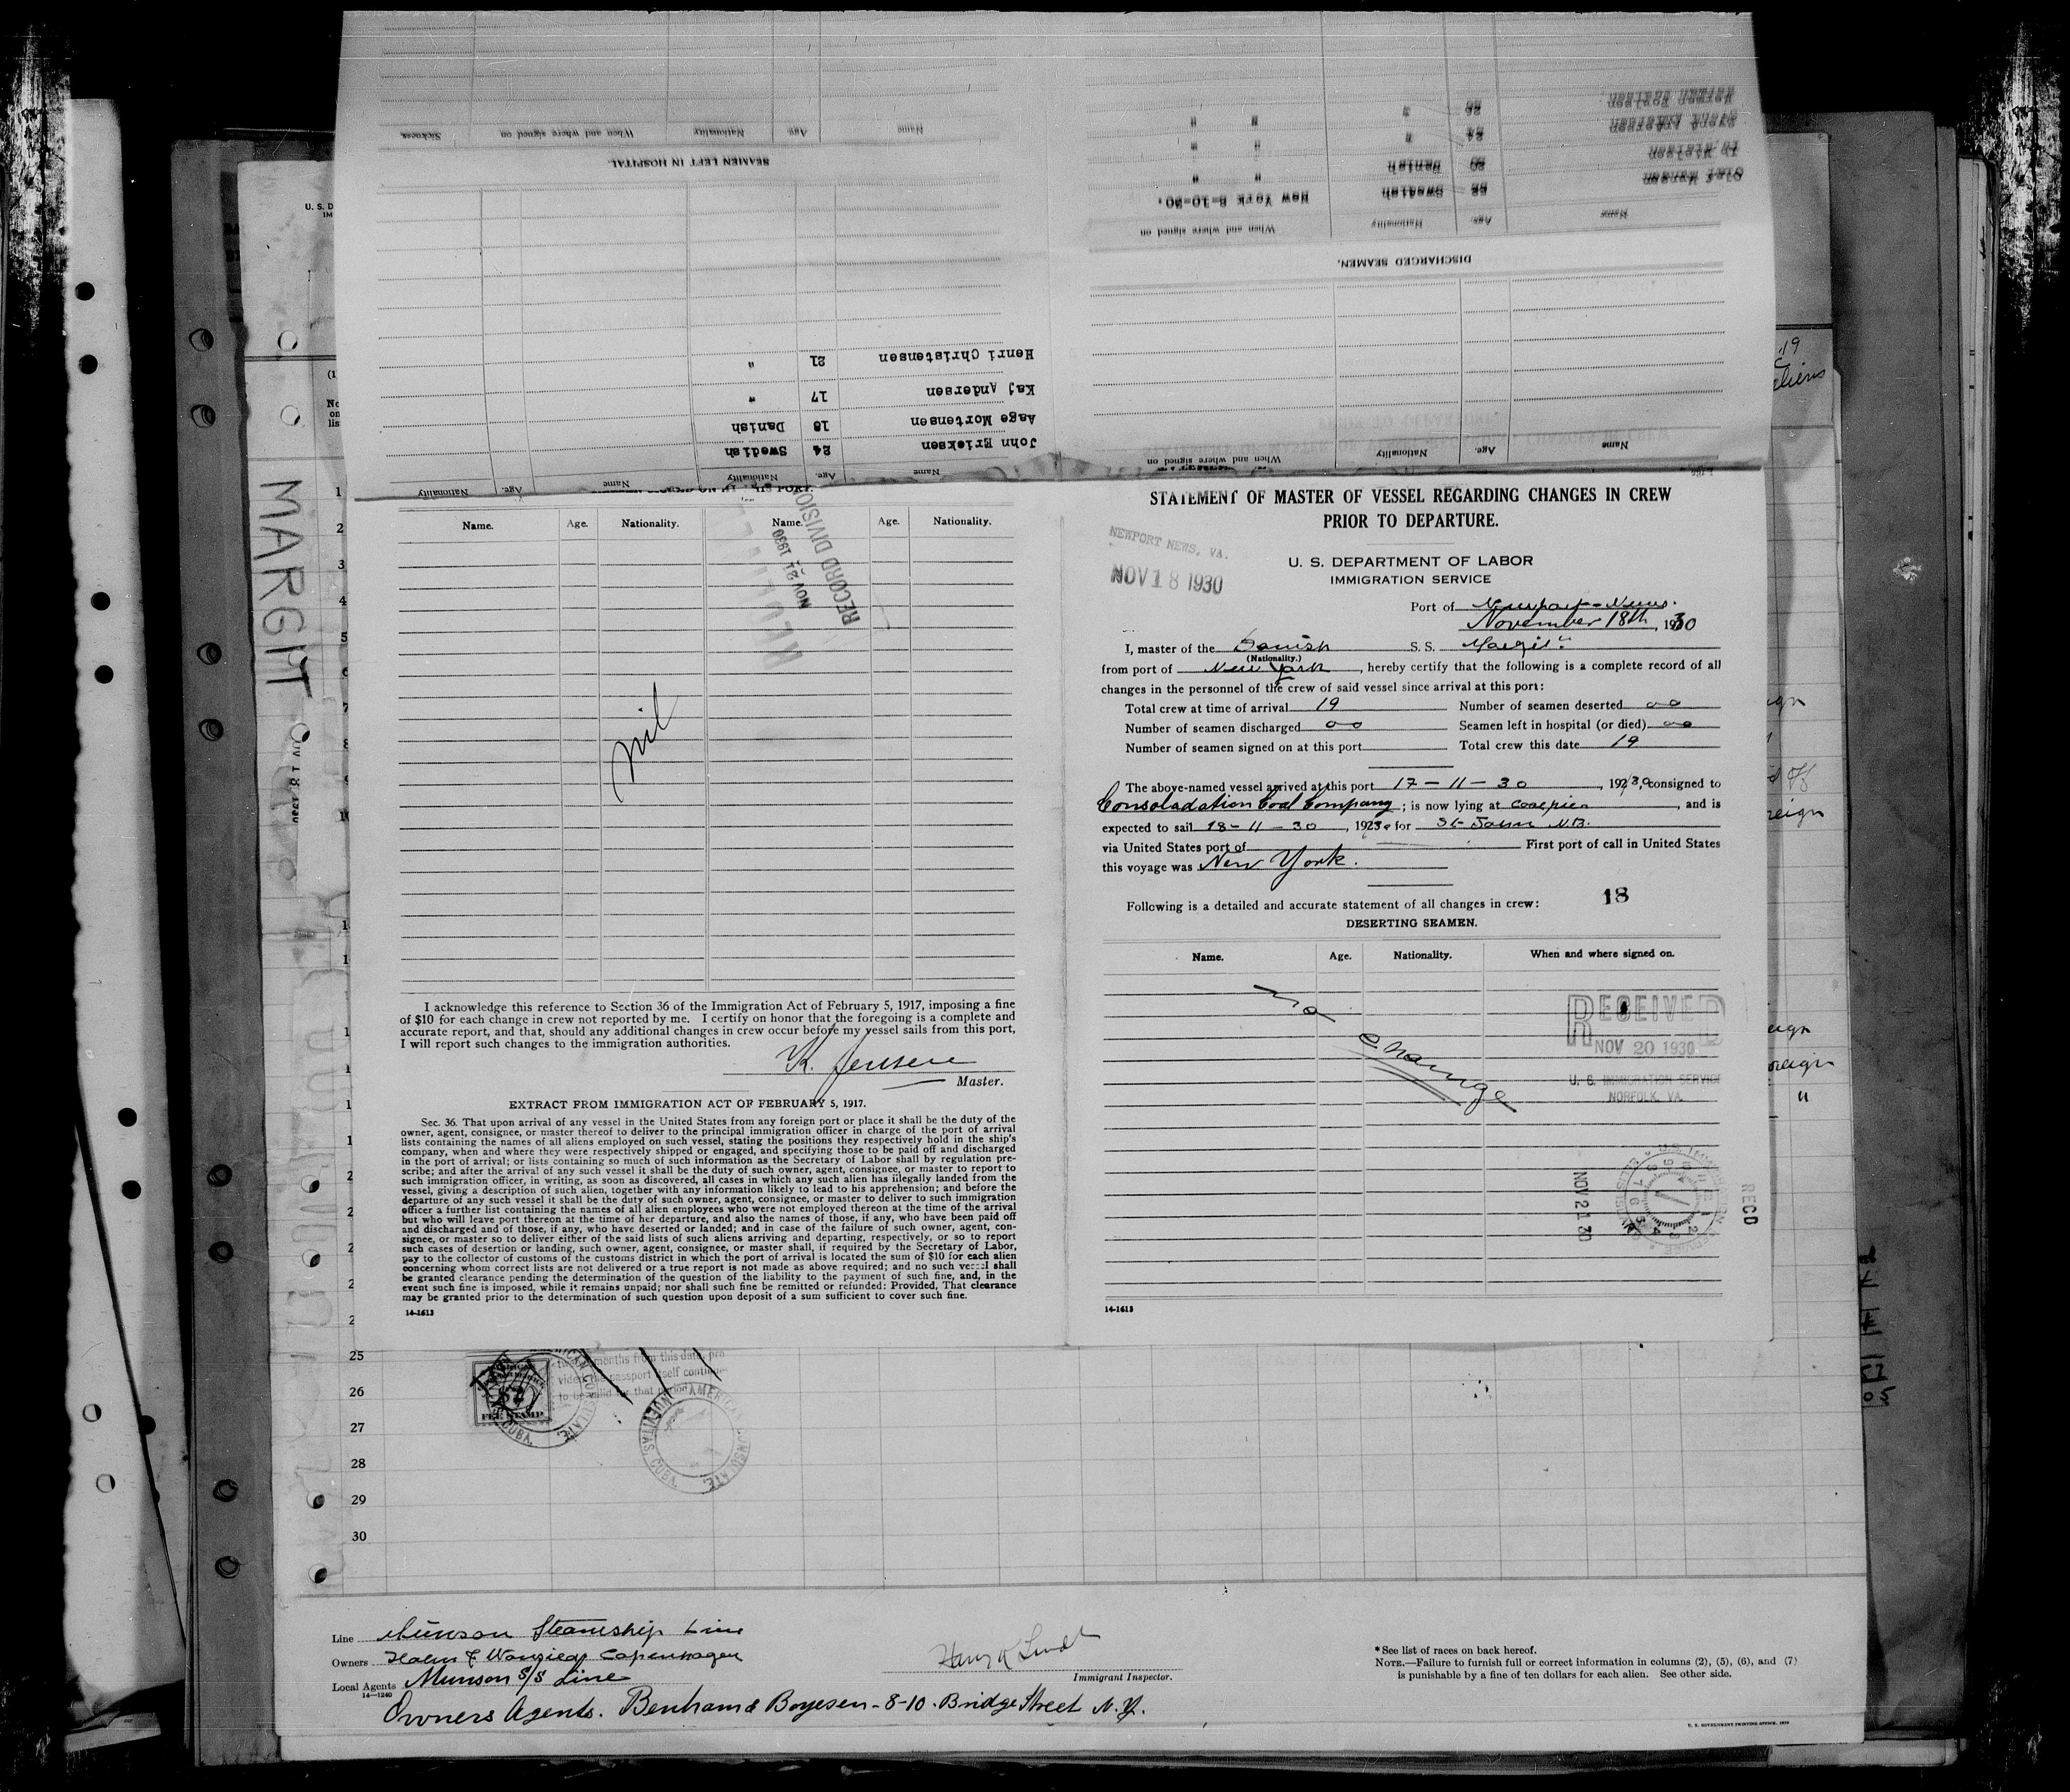 SEAMEN LEFT IN HOSPITAL.
Name Age. Nationality When and where signed on Sickness.
DISCHARGED SEAMEN.
Name Age. Nationality When and where signed on
Olaf Hansen 52 Swedish New York 8-10-30.
Nielsen 20 Danish " "
Svend Andersen 24 " " "
Herman Poulsen 26 " " "
Name Age. Nationality Name Age. Nationality
John Ericksen 24 Swedish
Aage Mortensen 18 Danish
Kaj Andersen 17 "
Henri Christensen 21 "
Name Age. Nationality When and where signed on
MARGIT
Name. Age. Nationality. Name. Age. Nationality.
NOV 21 1930
RECORD DIVISION
nil
I acknowledge this reference to Section 36 of the Immigration Act of February 5, 1917, imposing a fine
of $10 for each change in crew not reported by me. I certify on honor that the foregoing is a complete and
accurate report, and that, should any additional changes in crew occur before my vessel sails from this port,
I will report such changes to the immigration authorities.
K. Jensen
Master.
EXTRACT FROM IMMIGRATION ACT OF FEBRUARY 5, 1917.
Sec. 36. That upon arrival of any vessel in the United States from any foreign port or place it shall be the duty of the
owner, agent, consignee, or master thereof to deliver to the principal immigration officer in charge of the port of arrival
lists containing the names of all aliens employed on such vessel, stating the positions they respectively hold in the ship's
company, when and where they were respectively shipped or engaged, and specifying those to be paid off and discharged
in the port of arrival; or lists containing so much of such information as the Secretary of Labor shall by regulation pre-
scribe; and after the arrival of any such vessel it shall be the duty of such owner, agent, consignee, or master to report to
such immigration officer, in writing, as soon as discovered, all cases in which any such alien has illegally landed from the
vessel, giving a description of such alien, together with any information likely to lead to his apprehension; and before the
departure of any such vessel it shall be the duty of such owner, agent, consignee, or master to deliver to such immigration
officer a further list containing the names of all alien employees who were not employed thereon at the time of the arrival
but who will leave port thereon at the time of her departure, and also the names of those, if any, who have been paid off
and discharged and of those, if any, who have deserted or landed; and in case of the failure of such owner, agent, con-
signee, or master so to deliver either of the said lists of such aliens arriving and departing, respectively, or so to report
such cases of desertion or landing, such owner, agent, consignee, or master shall, if required by the Secretary of Labor,
pay to the collector of customs of the customs district in which the port of arrival is located the sum of $10 for each alien
concerning whom correct lists are not delivered or a true report is not made as above required; and no such vessel shall
be granted clearance pending the determination of the question of the liability to the payment of such fine, and, in the
event such fine is imposed, while it remains unpaid; nor shall such fine be remitted or refunded: Provided, That clearance
may be granted prior to the determination of such question upon deposit of a sum sufficient to cover such fine.
14-1613
STATEMENT OF MASTER OF VESSEL REGARDING CHANGES IN CREW
PRIOR TO DEPARTURE.
NEWPORT NEWS, VA.
NOV 18 1930
U. S. DEPARTMENT OF LABOR
IMMIGRATION SERVICE
Port of Newport-News.
November 18th, 1930
I, master of the Danish S. S. Margit
(Nationality.)
from port of New York, hereby certify that the following is a complete record of all
changes in the personnel of the crew of said vessel since arrival at this port:
Total crew at time of arrival 19 Number of seamen deserted oo
Number of seamen discharged oo Seamen left in hospital (or died) oo
Number of seamen signed on at this port Total crew this date 19
The above-named vessel arrived at this port 17-11-30, 1930, consigned to
Consoladation Coal Company; is now lying at coalpier, and is
expected to sail 18-11-30, 1930 for St John N.B.
via United States port of First port of call in United States
this voyage was New York.
18
Following is a detailed and accurate statement of all changes in crew:
DESERTING SEAMEN.
Name. Age. Nationality. When and where signed on.
no change
RECEIVED
NOV 20 1930
U. S. IMMIGRATION SERVICE
NORFOLK, VA.
NOV 21 30
RECD
14-1613
25
26
27
28
29
30
months from this date, pro
vided passport itself continues
to be valid for that period
FEE STAMP
AMERICAN CONSULATE
NUEVITAS, CUBA
Line Munson Steamship Line
Owners Holm & Wonsild Copenhagen
Local Agents Munson S/S Line
14-1240
Owners Agents. Benham & Boyesen - 8-10. Bridge Street N.Y.
Immigrant Inspector.
*See list of races on back hereof.
NOTE.—Failure to furnish full or correct information in columns (2), (5), (6), and (7)
is punishable by a fine of ten dollars for each alien. See other side.
U. S. GOVERNMENT PRINTING OFFICE